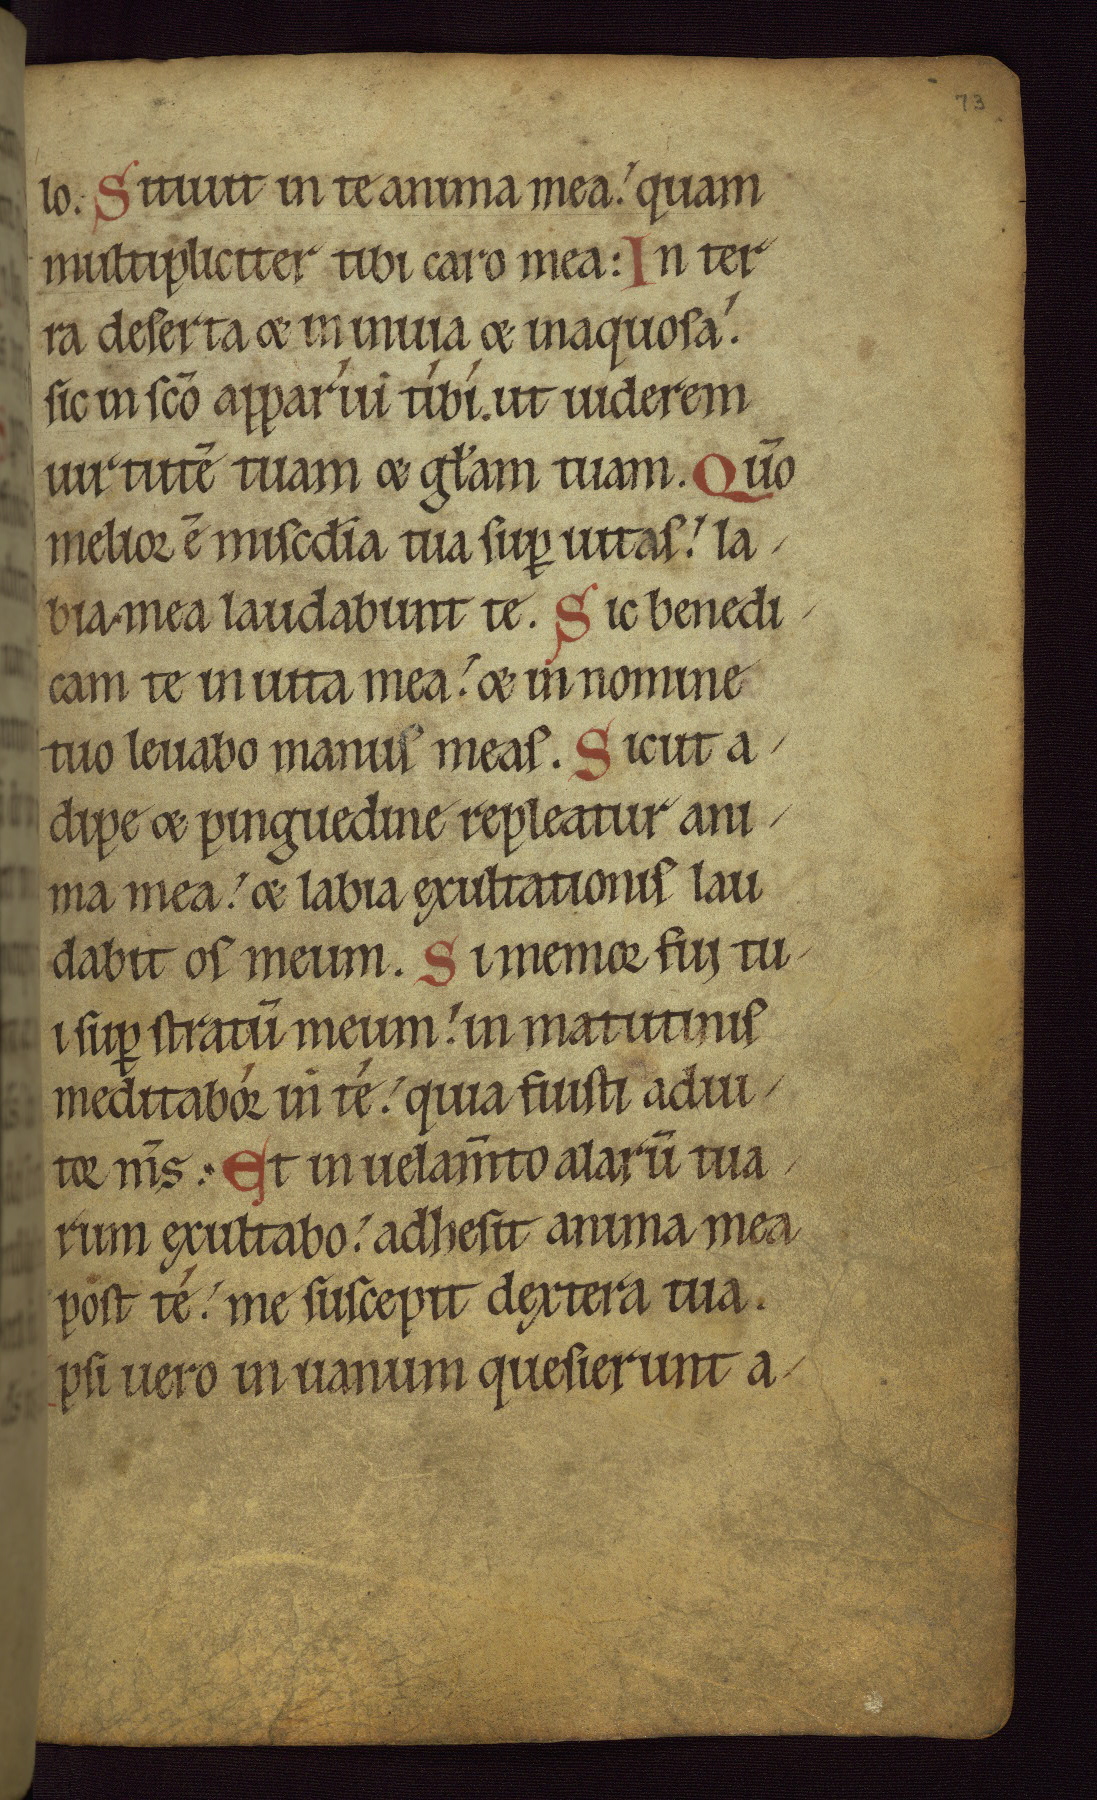 73
lo. Sitiuit in te anima mea: quam
multipliciter tibi caro mea: In ter
ra deserta & in inuia & inaquosa:
sic in sc̄o apparui tibi. ut uiderem
uirtutē tuam & gl̄am tuam. Qūo
melior ē misc̄dia tua sup̱ uitas: la-
bia mea laudabunt te. Sic benedi-
cam te in uita mea: & in nomine
tuo leuabo manus meas. Sicut a-
dipe & pinguedine repleatur ani-
ma mea: & labia exultationis lau
dabit os meum. Si memor fui tu-
i sup̱ stratū meum: in matutinis
meditabor in te: quia fuisti adiu-
tor m̄s: Et in uelam̄to alarū tua-
rum exultabo: adhesit anima mea
post te: me suscepit dextera tua.
Ipsi uero in uanum quesierunt a-